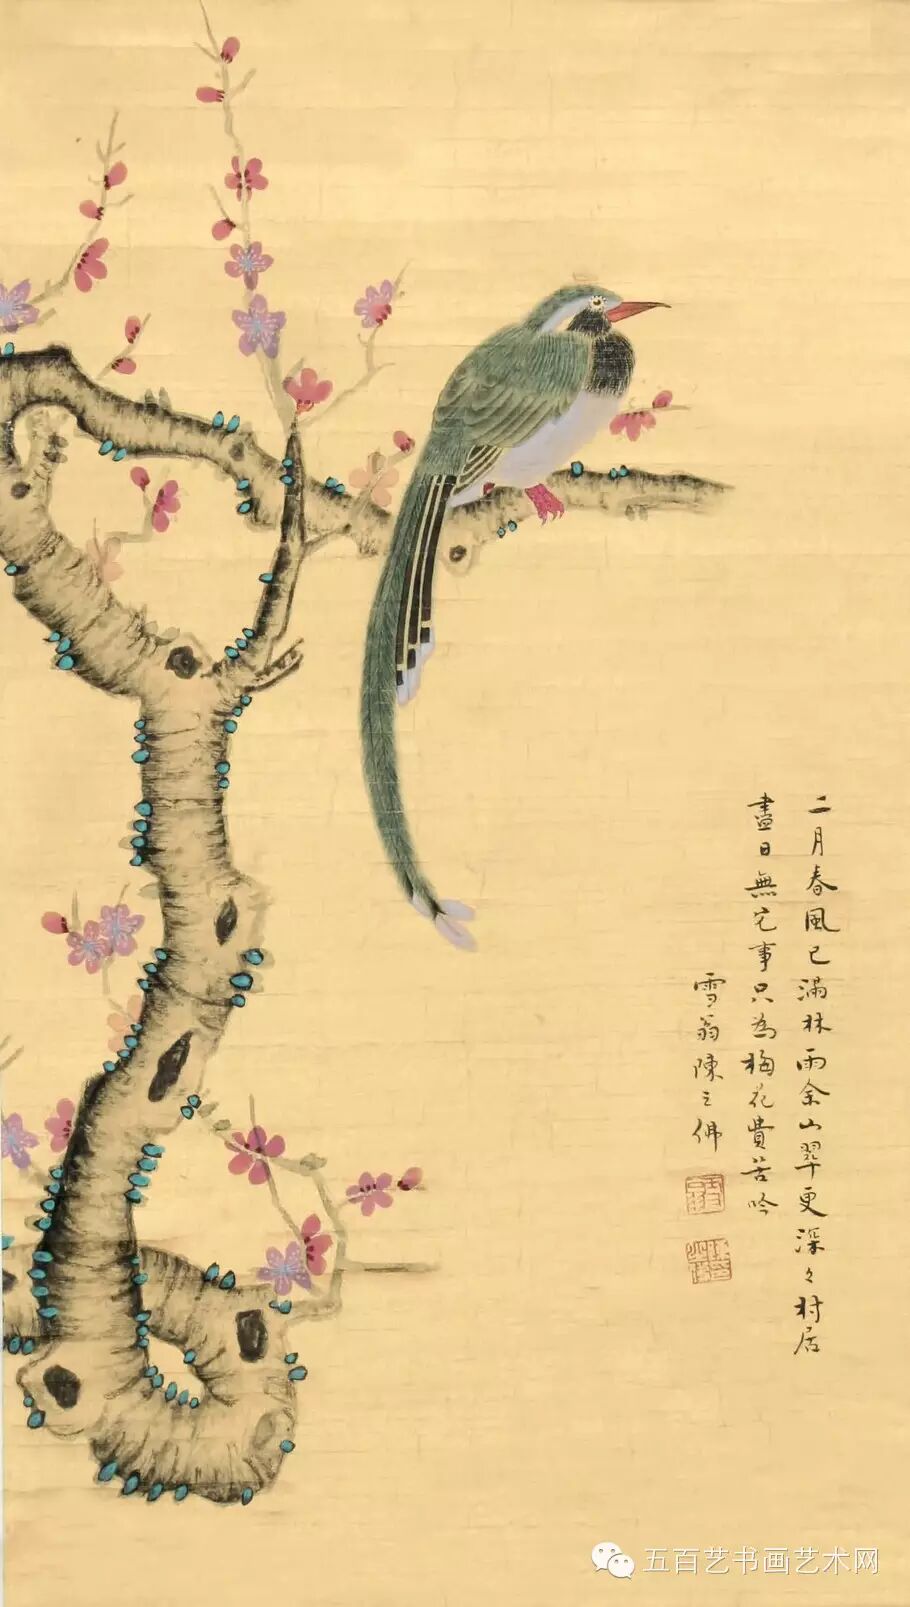 二月春風已滿林雨余山翠更深々村居
盡日無它事只為梅花費苦吟
雪翁陳之佛
五百艺书画艺术网